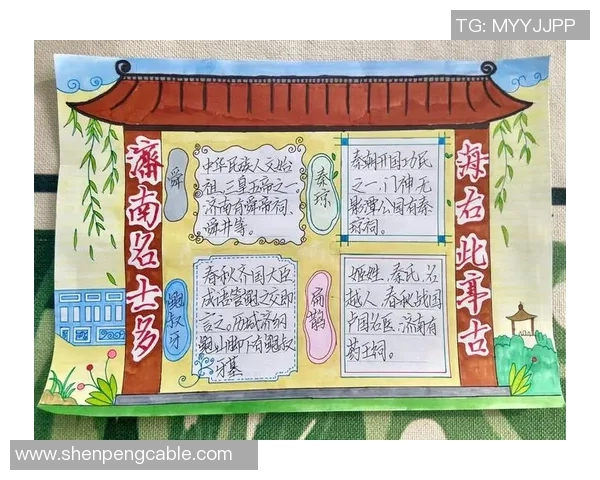 TG: MYYJJPP
海右此亭古
濟南名士多
舜
中华民族人文始
祖,三皇五帝之一,
济南有舜帝祠、
舜井等。
秦琼
秦朝开国功臣
之一,门神,无
影潭公园有秦
琼祠。
鲍叔牙
春秋齐国大臣,
成语管鲍之交即
言之。历城济钢
鲍山脚下有鲍叔
牙墓
扁鹊
姬姓,秦氏,名
越人,春秋战国
卢国名医,济南有
药王祠。
www.shenpengcable.com